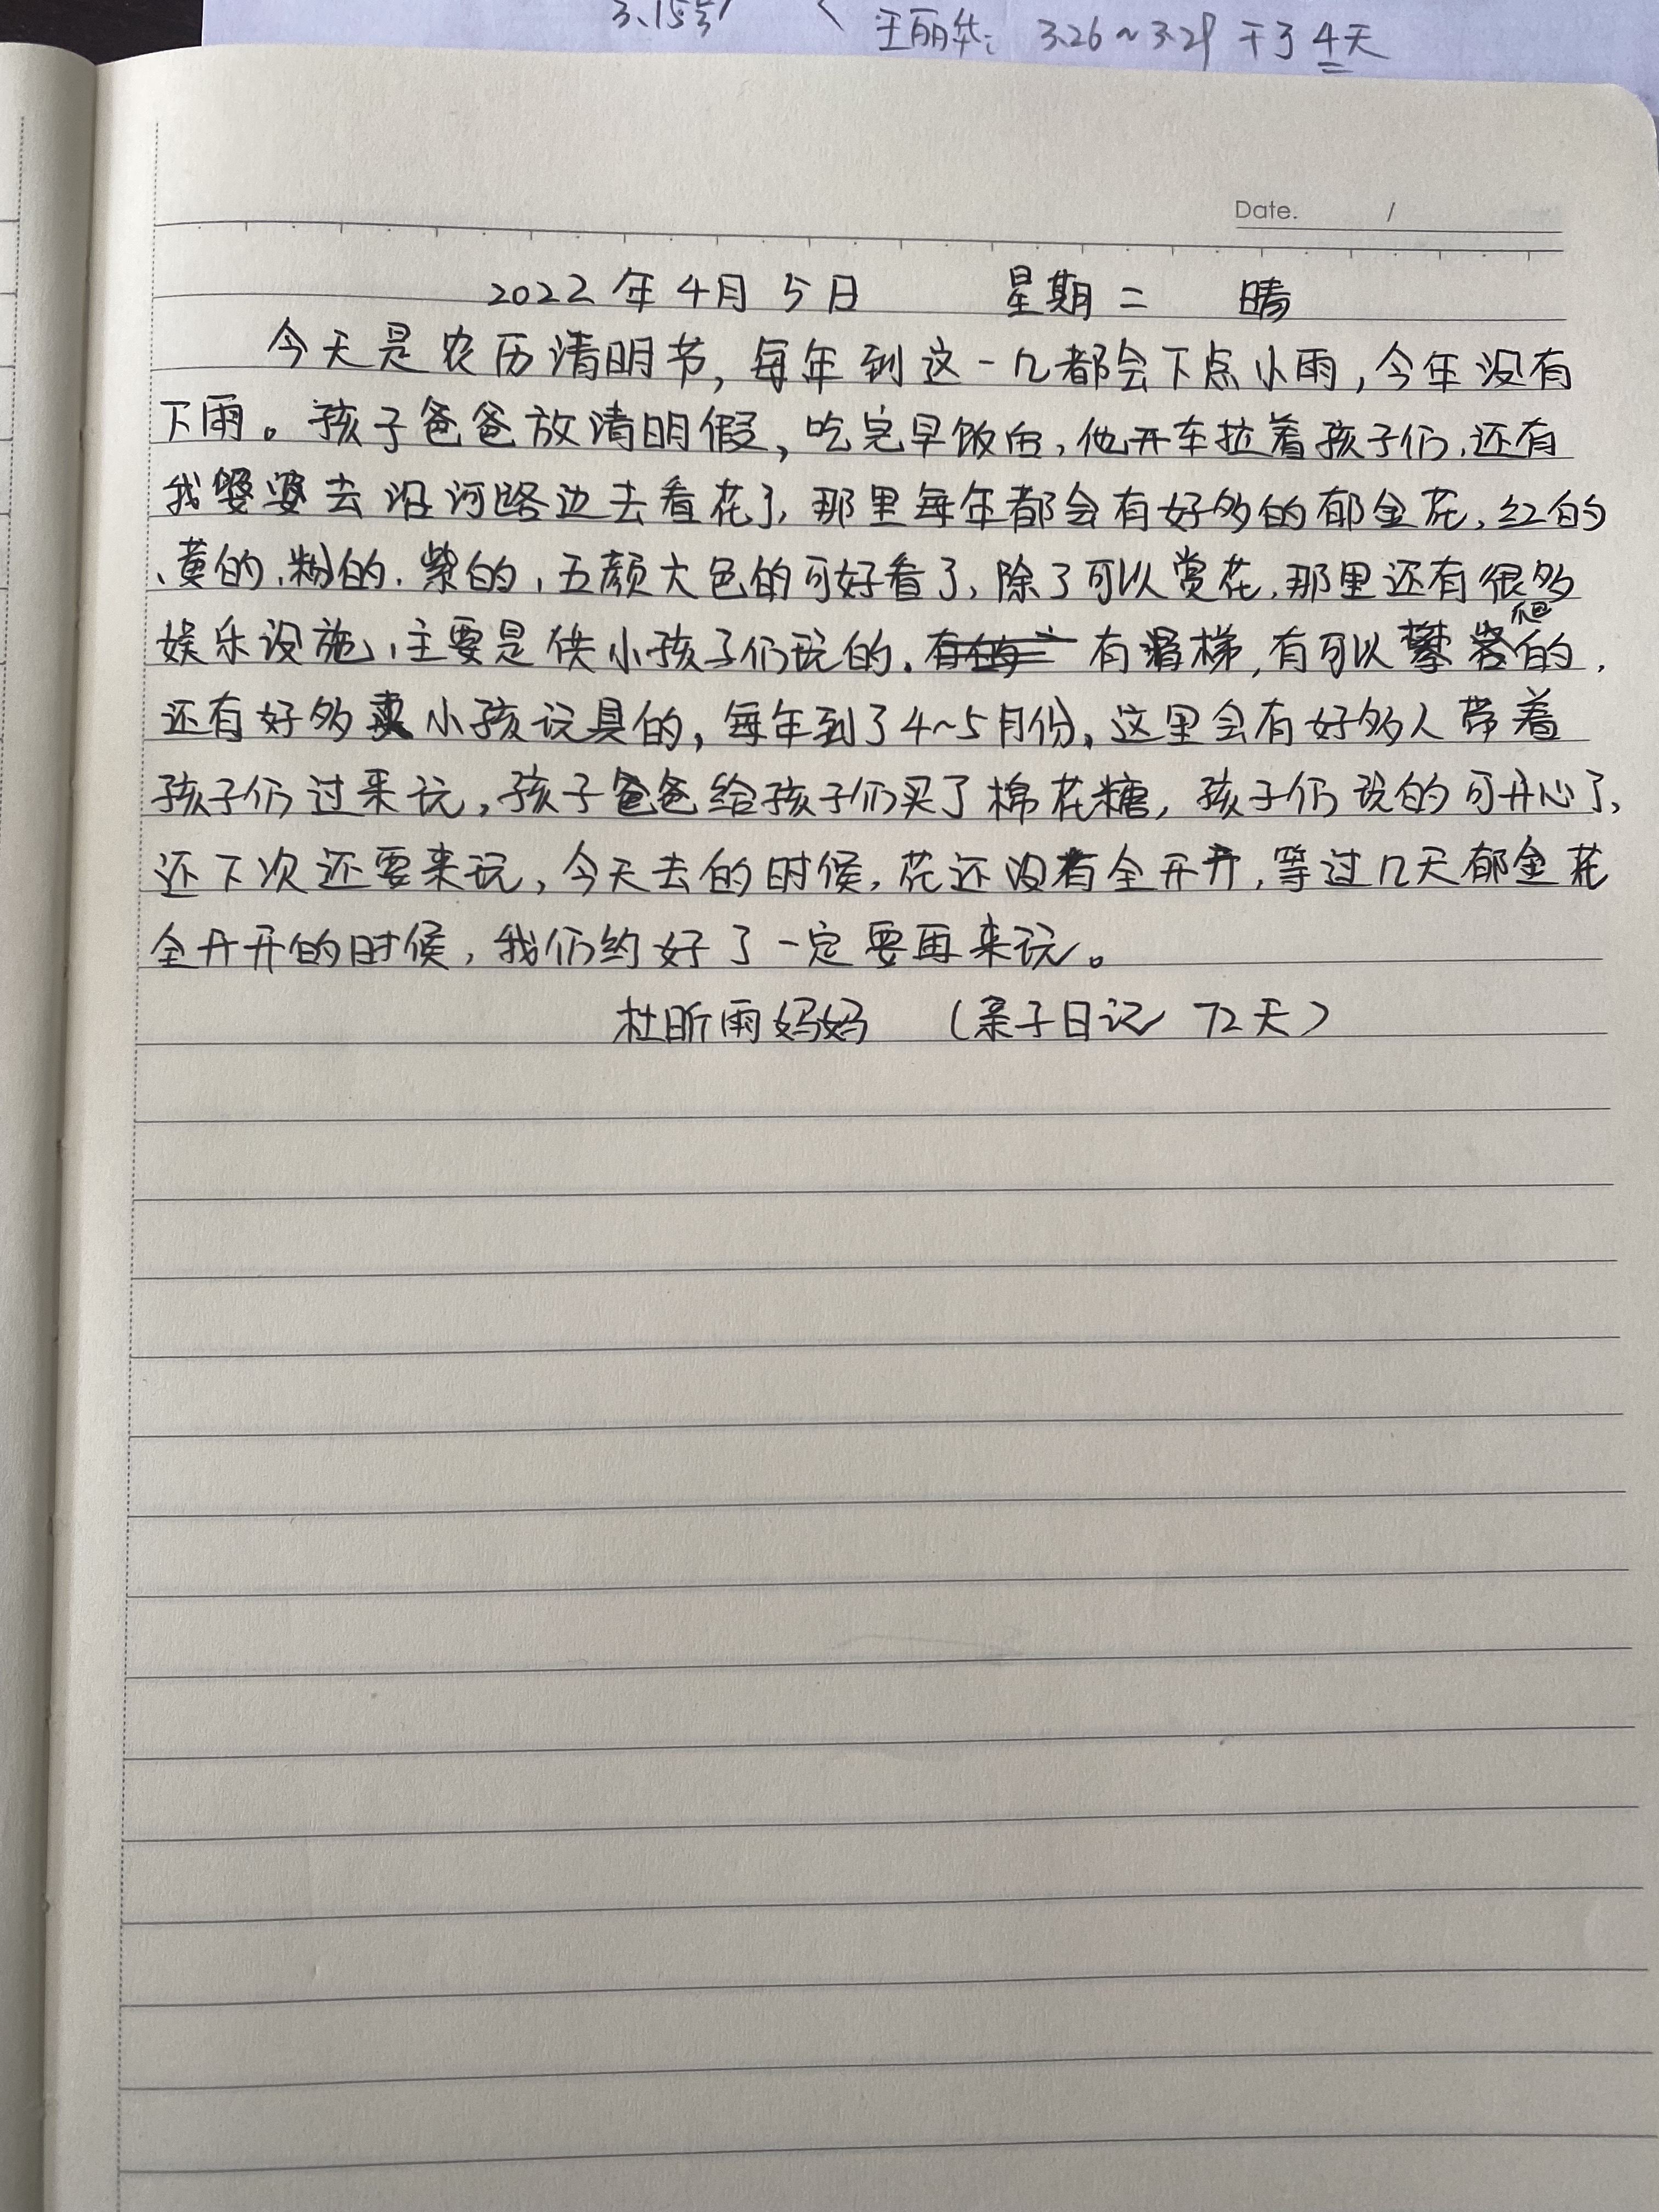 3.15号
王丽华: 3.26~3.29 干了4天
Date. /
2022年4月5日 星期二 晴
今天是农历清明节,每年到这一几都会下点小雨,今年没有
下雨。孩子爸爸放清明假,吃完早饭后,他开车拉着孩子们,还有
我婆婆去沿河路边去看花了,那里每年都会有好多的郁金花,红的
、黄的,粉的,紫的,五颜大色的可好看了,除了可以赏花,那里还有很多
娱乐设施,主要是供小孩子们玩的,有滑梯,有可以攀爬的,
还有好多卖小孩玩具的,每年到了4~5月份,这里会有好多人带着
孩子们过来玩,孩子爸爸给孩子们买了棉花糖,孩子们说的可开心了,
还下次还要来玩,今天去的时候,花还没有全开开,等过几天郁金花
全开开的时候,我们约好了一定要再来玩。
杜昕雨妈妈 (亲子日记 72天)